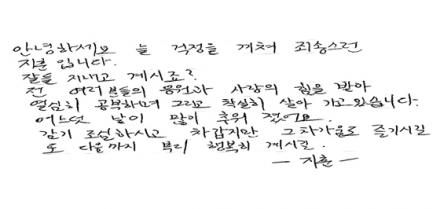 안녕하세요 늘 걱정을 끼쳐 죄송스런
지훈 입니다.
잘들 지내고 계시죠?
전 여러분들의 응원과 사랑의 힘을 받아
열심히 공부하며 그리고 착실히 살아 가고있습니다.
어느덧 날이 많이 추워 졌어요.
감기 조심하시고 차갑지만 그차가움을 즐기시길
또 다음까지 부디 행복히 계시길.
— 지훈 —